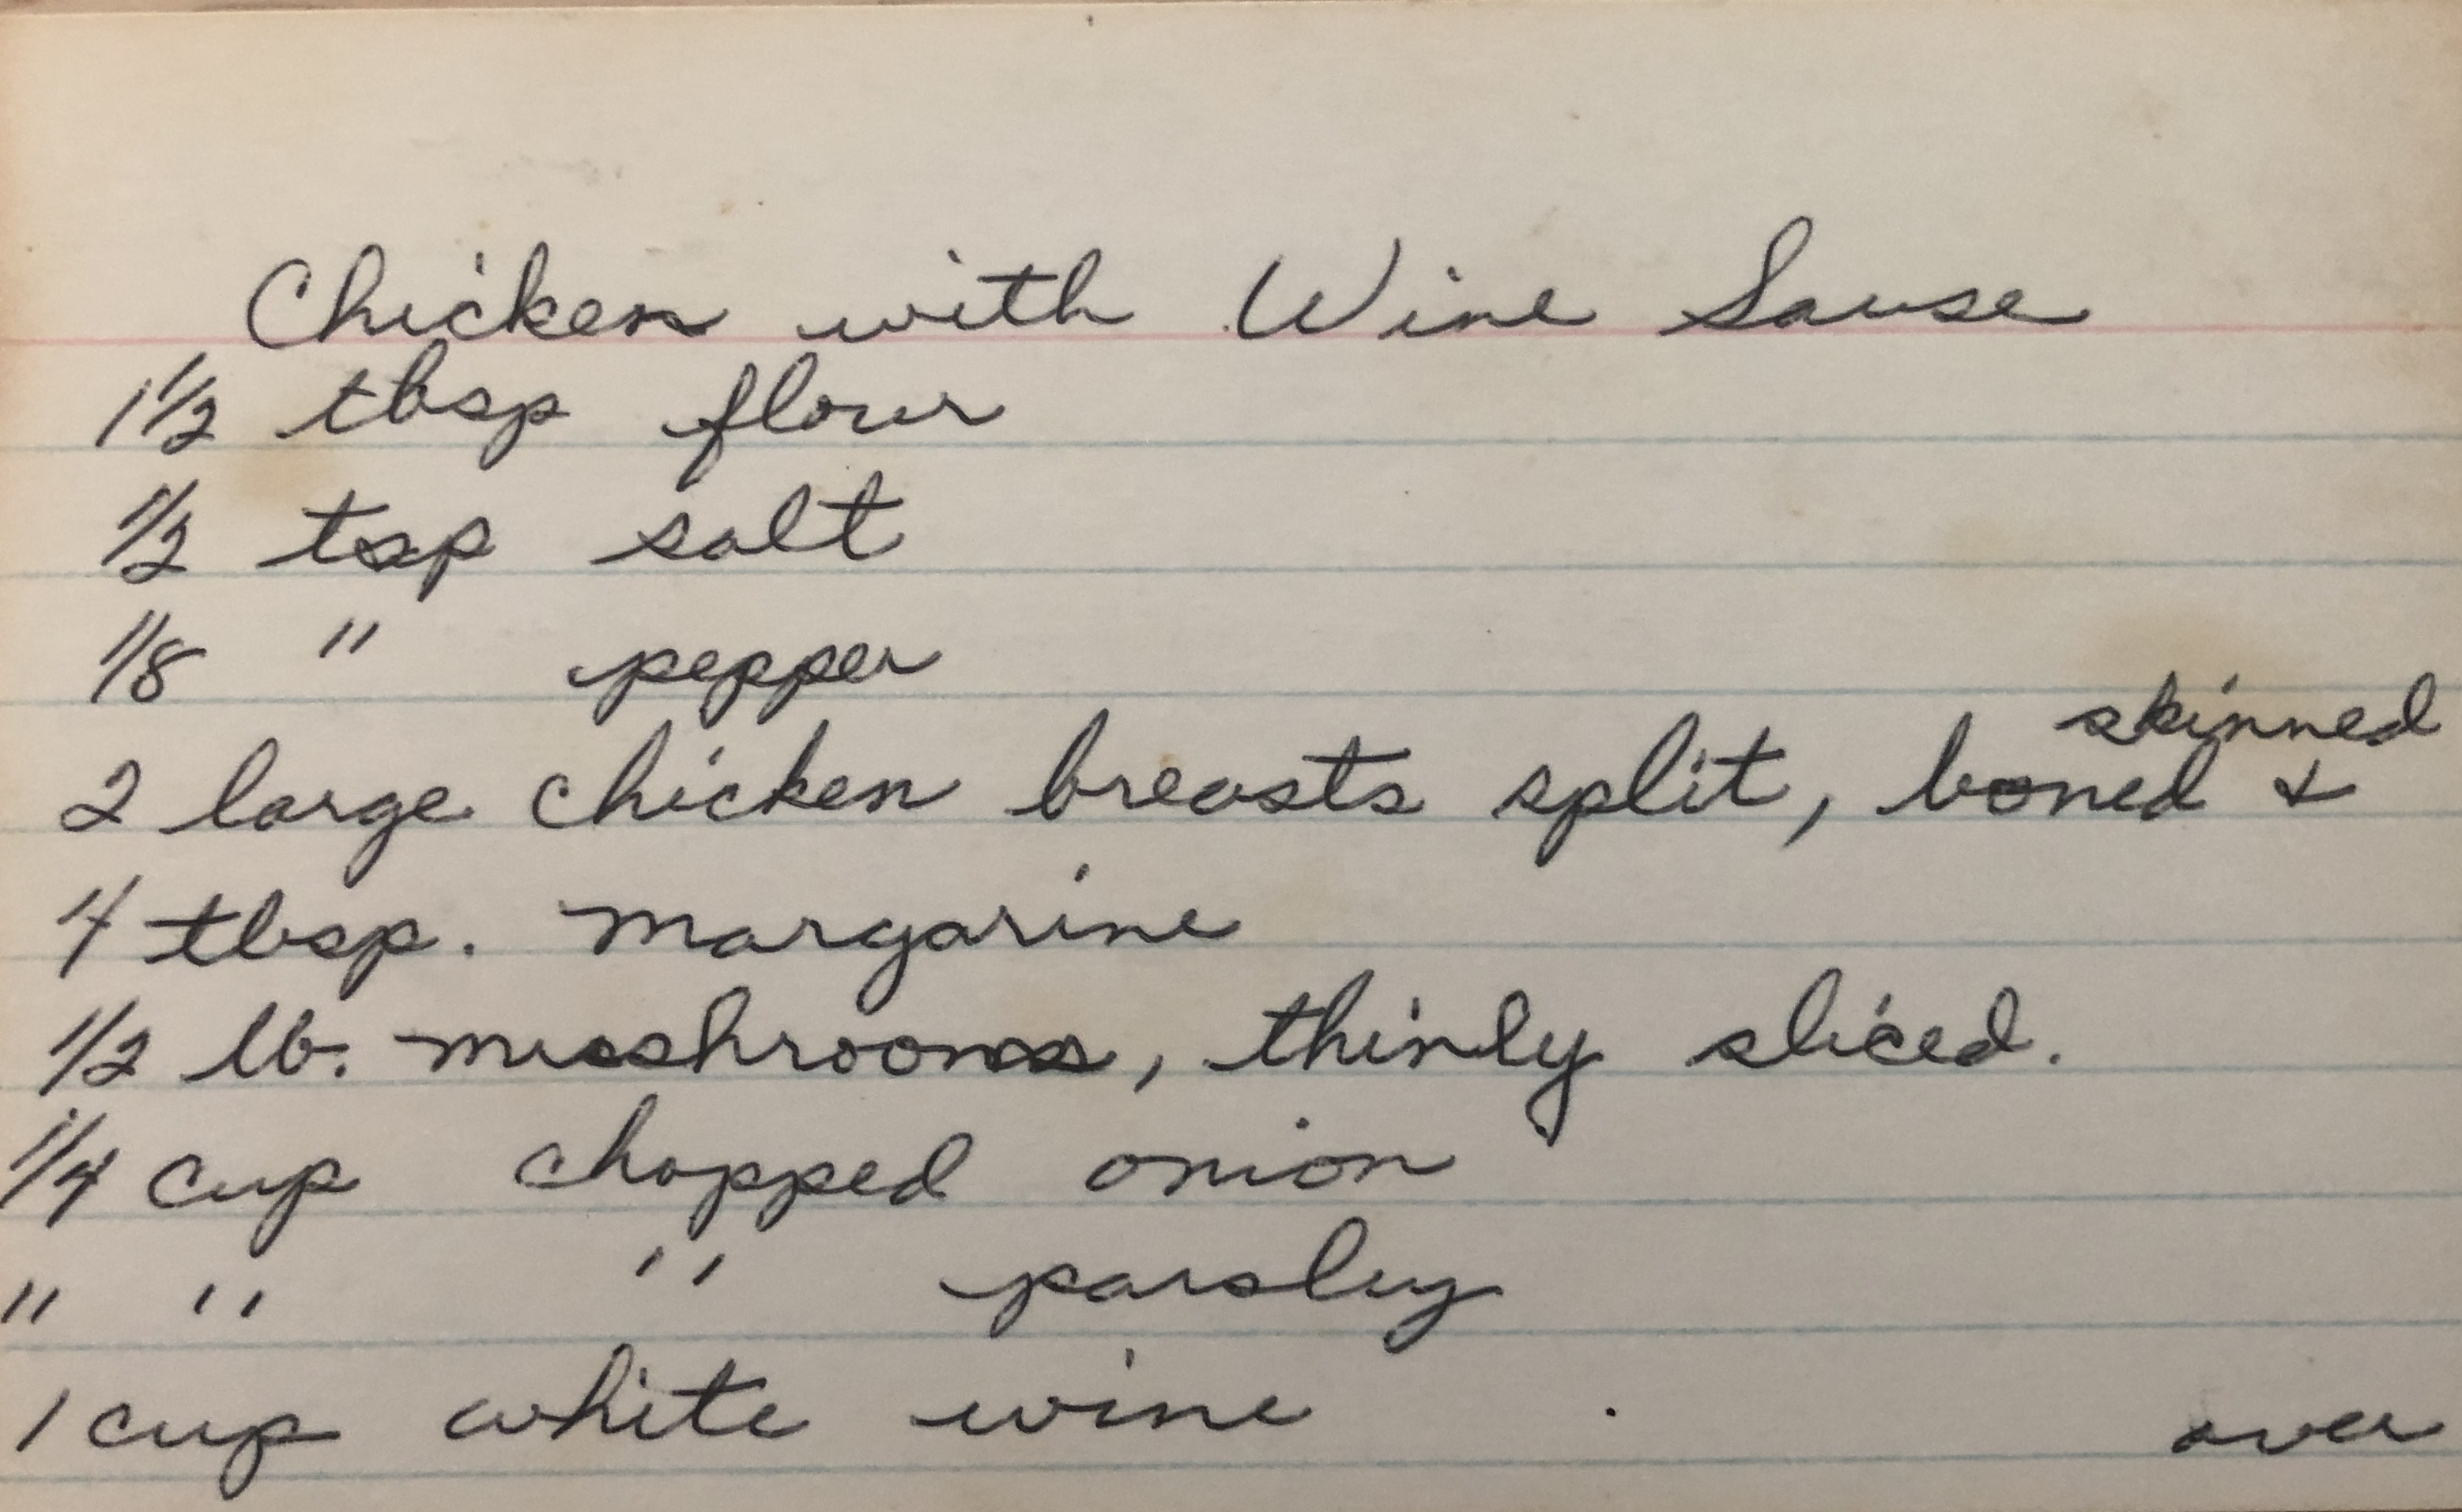 Chicken with Wine Sause
1 1/2 tbsp flour
1/2 tsp salt
1/8 " pepper
2 large chicken breasts split, boned & skinned
4 tbsp. margarine
1/2 lb. musshrooms, thinly sliced.
1/4 cup chopped onion
" " " parsley
1 cup white wine
over